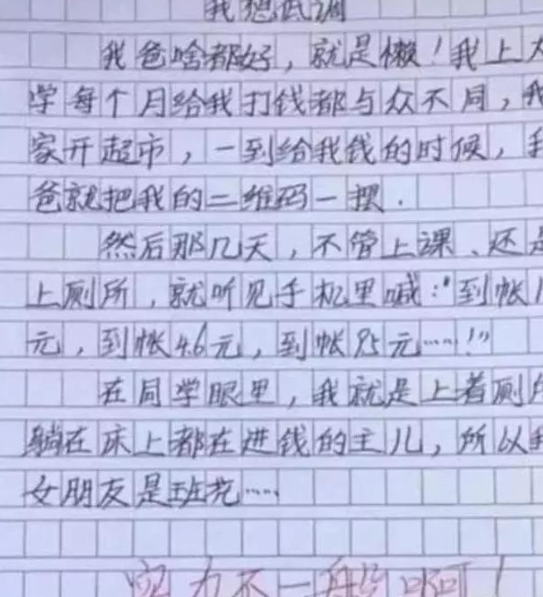 我想低调
我爸啥都好，就是懒！我上大
学每个月给我打钱都与众不同，我
家开超市，一到给我钱的时候，我
爸就把我的二维码一摆．
然后那几天，不管上课、还是
上厕所，就听见手机里喊："到帐1
元，到帐4.6元，到帐85元……！"
在同学眼里，我就是上着厕所
躺在床上都在进钱的主儿，所以我
女朋友是班花……
实力不一般啊！